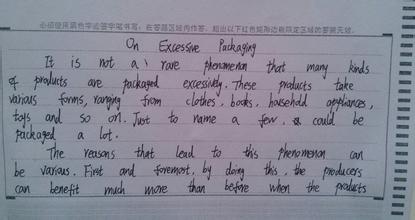 必须使用黑色字迹签字笔书写，在答题区域内作答，超出以下红色矩形边框限定区域的答案无效。
On Excessive Packaging
It is not a rare phenomenon that many kinds
of products are packaged excessively. These products take
various forms, ranging from clothes, books, household appliances,
toys and so on. Just to name a few. could be
packaged a lot.
The reasons that lead to this phenomenon can
be various. First and foremost, by doing this, the producers
can benefit much more than before when the products